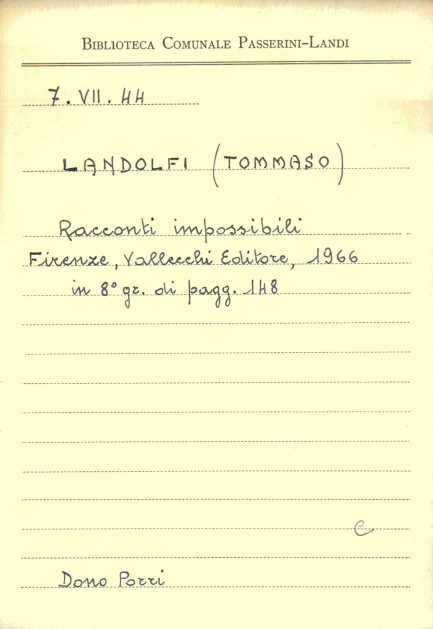 BIBLIOTECA COMUNALE PASSERINI-LANDI
7.VII.44
LANDOLFI (TOMMASO)
Racconti impossibili
Firenze, Vallecchi Editore, 1966
in 8° gr. di pagg. 148
e
Dono Porri